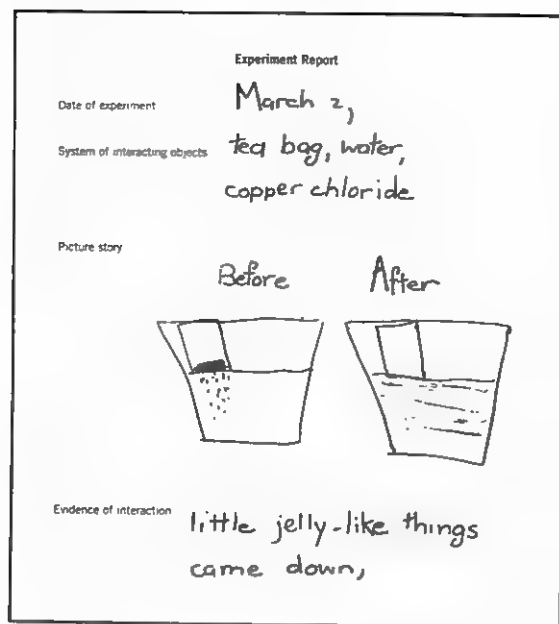 Experiment Report
Date of experiment March 2,
System of interacting objects tea bag, water,
copper chloride
Picture story
Before After
Evidence of interaction little jelly-like things
came down,